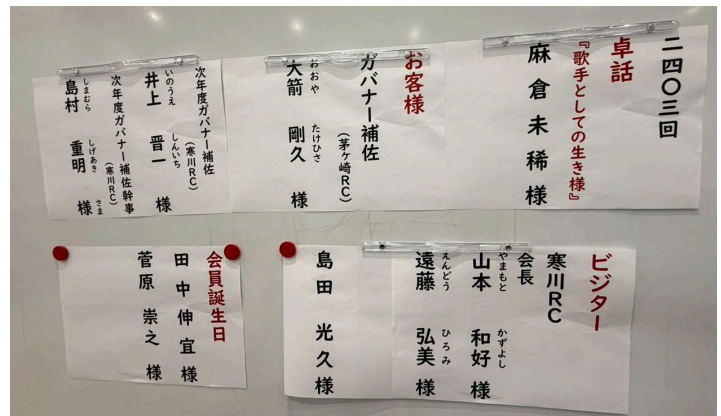 二四〇三回
卓話
『歌手としての生き様』
麻倉未稀様
お客様
ガバナー補佐
(茅ヶ崎RC)
おおや たけひさ
大箭 剛久 様
次年度ガバナー補佐
(寒川RC)
いのうえ しんいち
井上 晋一 様
次年度ガバナー補佐幹事
(寒川RC)
しまむら しげあき さま
島村 重明 様
ビジター
寒川RC
会長
やまもと かずよし
山本 和好 様
えんどう ひろみ
遠藤 弘美 様
島田 光久 様
会員誕生日
田中 伸宜 様
菅原 崇之 様